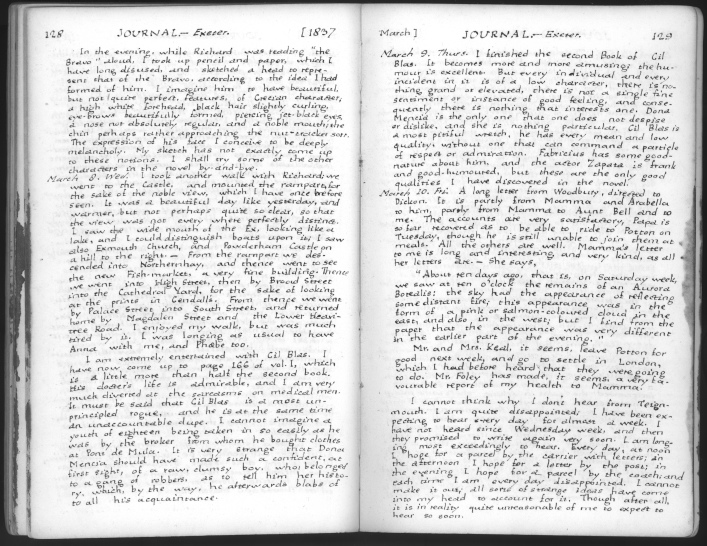 128 JOURNAL.— Exeter. [1837
In the evening, while Richard was reading "the
Bravo" aloud, I took up pencil and paper, which I
have long disused, and sketched a head to repre-
sent that of the Bravo, according to the idea I had
formed of him. I imagine him to have beautiful,
but not quite perfect, features, of Grecian character,
a high white forehead, black hair slightly curling,
eye-brows beautifully formed, piercing jet-black eyes,
a nose not absolutely regular, and a noble mouth; the
chin perhaps rather approaching the nut-cracker sort.
The expression of his face I conceive to be deeply
melancholy. My sketch has not exactly come up
to these notions. I shall try some of the other
characters in the novel by-and-bye.
March 8. Wed. I took another walk with Richard; we
went to the Castle, and mounted the ramparts for
the sake of the noble view, which I have once before
seen. It was a beautiful day like yesterday, and
warmer, but not perhaps quite so clear, so that
the view was not every where perfectly distinct.
I saw the wide mouth of the Ex, looking like a
lake, and I could distinguish boats upon it; I saw
also Exmouth Church, and Powderham Castle on
a hill to the right.— From the rampart we des-
cended into Northernhay, and thence went to see
the new Fish-market, a very fine building. Thence
we went into High Street, then by Broad Street
into the Cathedral Yard, for the sake of looking
at the prints in Gendalls. From thence we went
by Palace Street into South Street, and returned
home by Magdalen Street and the Lower Heavi-
tree Road. I enjoyed my walk, but was much
tired by it. I was longing as usual to have
Anna with me, and Phebe too.
I am extremely entertained with Gil Blas. I
have now come up to page 166 of vol. I, which
is a little more than half the second book.
His doctor's life is admirable, and I am very
much diverted at the sarcasms on medical men.
It must be said that Gil Blas is a most un-
principled rogue, and he is at the same time
an unaccountable dupe. I cannot imagine a
youth of eighteen being taken in so easily as he
was by the broker from whom he bought clothes
at Pons de Mula. It is very strange that Dona
Mencia should have made such a confident, at
first sight, of a raw, clumsy boy, who belonged
to a gang of robbers, as to tell him her histo-
ry, which, by the way, he afterwards blabs of
to all his acquaintance.
March] JOURNAL.— Exeter. 129
March 9. Thurs. I finished the second Book of Gil
Blas. It becomes more and more amusing; the hu-
mour is excellent. But every individual and every
incident in it is of a low character, there is no-
thing grand or elevated, there is not a single fine
sentiment or instance of good feeling, and conse-
quently there is nothing that interests one. Dona
Mencia is the only one that one does not despise
or dislike, and she is nothing particular. Gil Blas is
a most pitiful wretch, he has every mean and low
quality, without one that can command a particle
of respect or admiration. Fabricius has some good-
nature about him, and the actor Zapata is frank
and good-humoured, but these are the only good
qualities I have discovered in the novel.
March 10. Fri. A long letter from Woodbury, directed to
Dickon. It is partly from Mamma and Arabella
to him, partly from Mamma to Aunt Bell and to
me. The accounts are very satisfactory, Papa is
so far recovered as to be able to ride to Potton on
Tuesday, though he is still unable to join them at
meals. All the others are well. Mamma's letter
to me is long and interesting, and very kind, as all
her letters are.— She says,
"About ten days ago, that is, on Saturday week,
we saw at ten o'clock the remains of an Aurora
Borealis: the sky had the appearance of reflecting
some distant fire; this appearance was in the
form of a pink or salmon-coloured cloud in the
east, and also in the west, but I find from the
paper that the appearance was very different
in the earlier part of the evening."
Mr. and Mrs. Keal, it seems, leave Potton for
good next week, and go to settle in London,
which I had before heard that they were going
to do. Mr. Pley has made, it seems, a very fa-
vourable report of my health to Mamma.
I cannot think why I don't hear from Teign-
mouth. I am quite disappointed; I have been ex-
pecting to hear every day for almost a week. I
have not heard since Wednesday week, and then
they promised to write again very soon. I am long-
ing most exceedingly to hear. Every day, at noon
I hope for a parcel by the carrier with letters; in
the afternoon I hope for a letter by the post; in
the evening I hope for a parcel by the coach; and
each time I am every day disappointed. I cannot
make it out, all sorts of strange ideas have come
into my head to account for it. Though after all,
it is in reality quite unreasonable of me to expect to
hear so soon.